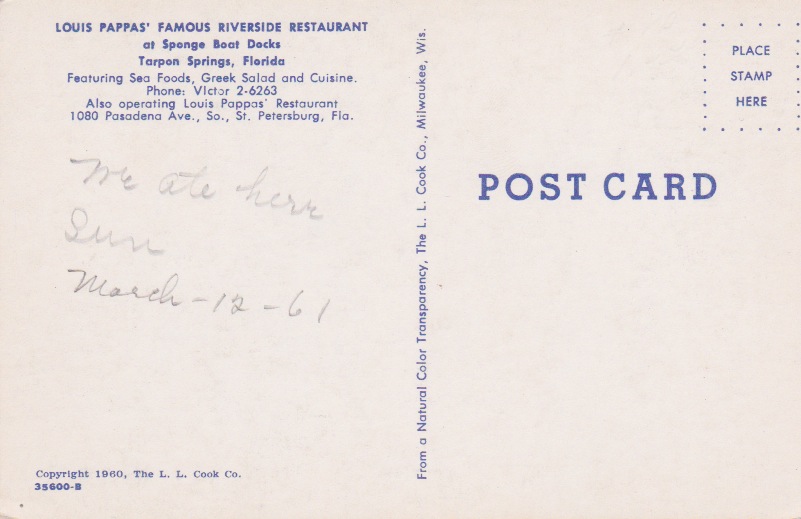 LOUIS PAPPAS' FAMOUS RIVERSIDE RESTAURANT
at Sponge Boat Docks
Tarpon Springs, Florida
Featuring Sea Foods, Greek Salad and Cuisine.
Phone: VIctor 2-6263
Also operating Louis Pappas' Restaurant
1080 Pasadena Ave., So., St. Petersburg, Fla.
We ate here
Sun
March-12-61
Copyright 1960, The L. L. Cook Co.
35600-B
From a Natural Color Transparency, The L. L. Cook Co., Milwaukee, Wis.
PLACE
STAMP
HERE
POST CARD